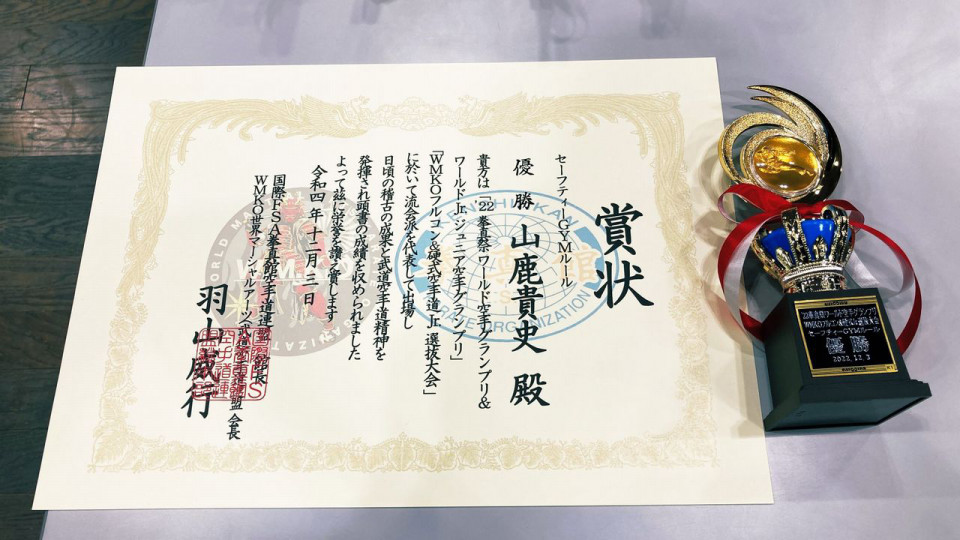 賞状
セーフティーGYMルール
優勝 山鹿貴史 殿
貴方は「'22 拳真祭ワールド空手グランプリ&
ワールドJr.ジュニア空手グランプリ」
「WMKOフルコン&硬式空手道Jr.選抜大会」
に於いて流会派を代表して出場し
日頃の稽古の成果と武道空手道精神を
発揮され頭書の成績を収められました
よって茲に栄誉を讃え賞します
令和四年十二月三日
国際FSA拳真館空手道連盟
WMKO世界マーシャルアーツ武道空手道連盟 会長
羽山威行
WMKO
KARATE ORGANIZATION
セーフティーGYMルール
優勝
2022.12.3